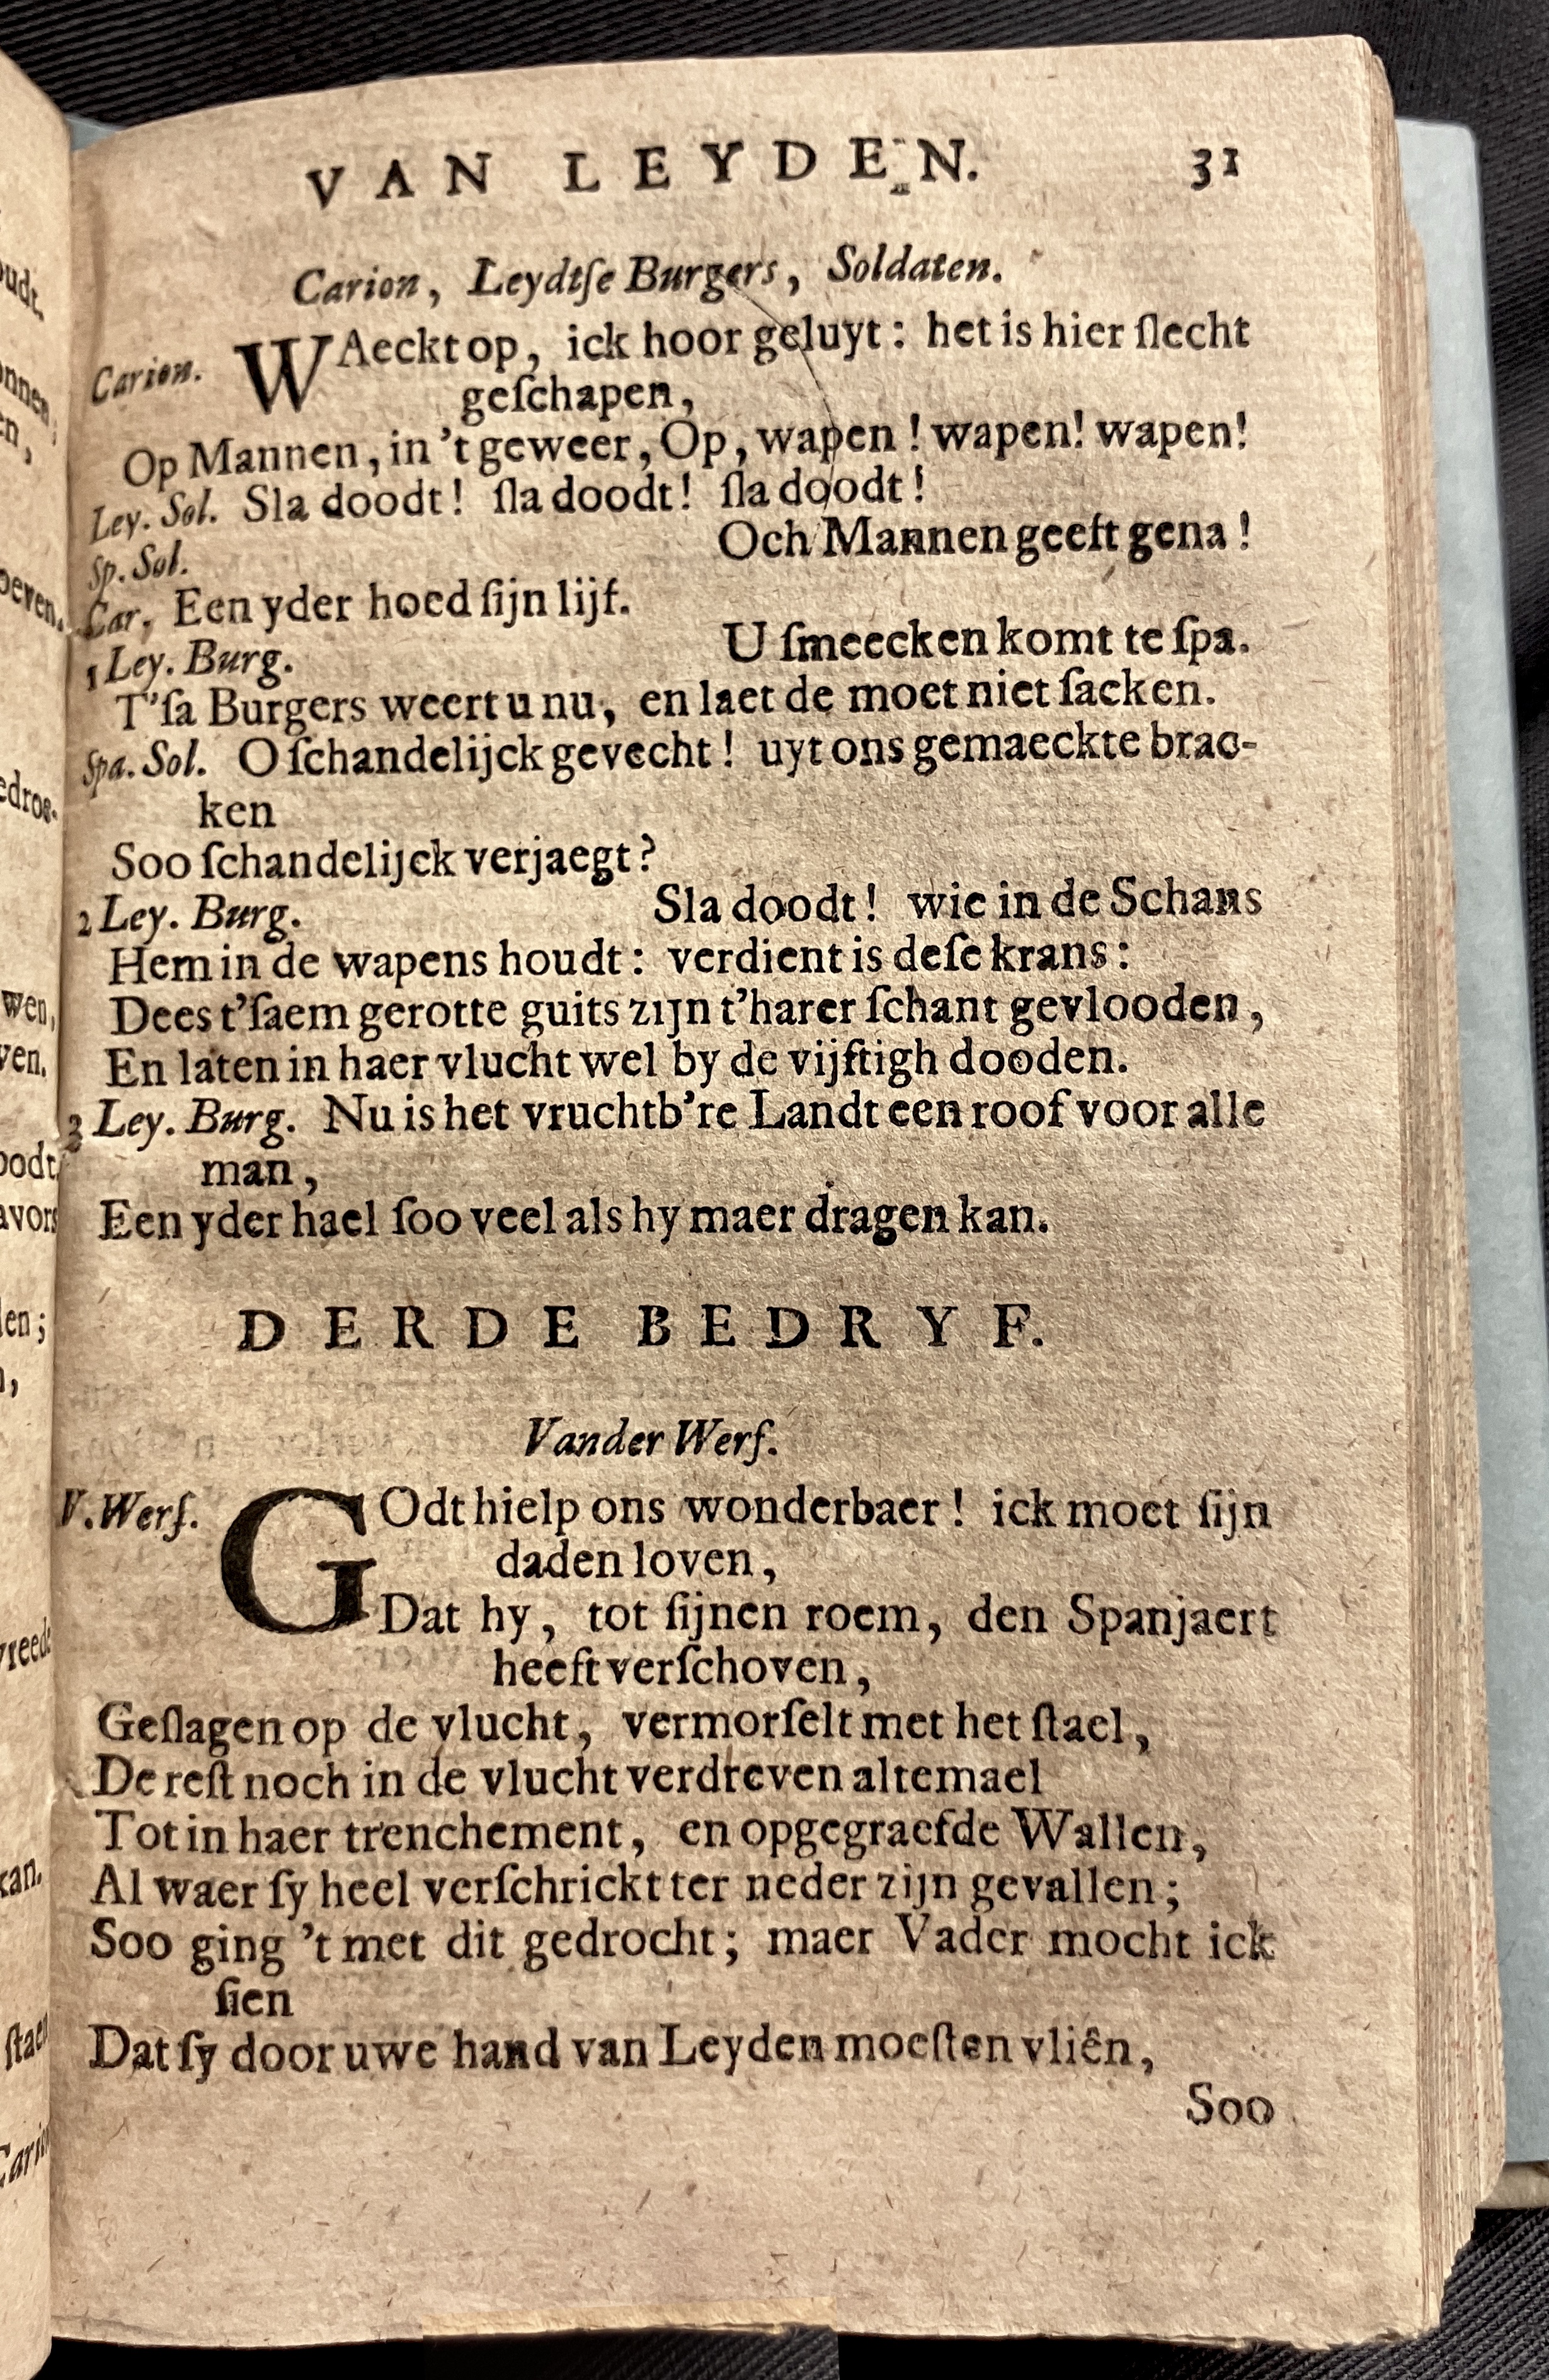 VAN LEYDEN. 31
Carion, Leydtſe Burgers, Soldaten.
Carion. WAeckt op, ick hoor geluyt: het is hier ſlecht
geſchapen,
Op Mannen, in 't geweer, Op, wapen! wapen! wapen!
Ley. Sol. Sla doodt! ſla doodt! ſla doodt!
Sp. Sol. Och Mannen geeft gena!
Car. Een yder hoed ſijn lijf.
1 Ley. Burg. U ſmeecken komt te ſpa.
T'ſa Burgers weert u nu, en laet de moet niet ſacken.
Spa. Sol. O ſchandelijck gevecht! uyt ons gemaeckte brac-
ken
Soo ſchandelijck verjaegt?
2 Ley. Burg. Sla doodt! wie in de Schans
Hem in de wapens houdt: verdient is deſe krans:
Dees t'ſaem gerotte guits zijn t'harer ſchant gevlooden,
En laten in haer vlucht wel by de vijftigh dooden.
3 Ley. Burg. Nu is het vruchtb're Landt een roof voor alle
man,
Een yder hael ſoo veel als hy maer dragen kan.
DERDE BEDRYF.
Vander Werf.
V. Werf. GOdt hielp ons wonderbaer! ick moet ſijn
daden loven,
Dat hy, tot ſijnen roem, den Spanjaert
heeft verſchoven,
Geſlagen op de vlucht, vermorſelt met het ſtael,
De reſt noch in de vlucht verdreven altemael
Tot in haer trenchement, en opgegraefde Wallen,
Al waer ſy heel verſchrickt ter neder zijn gevallen;
Soo ging 't met dit gedrocht; maer Vader mocht ick
ſien
Dat ſy door uwe hand van Leyden moeſten vliên,
Soo